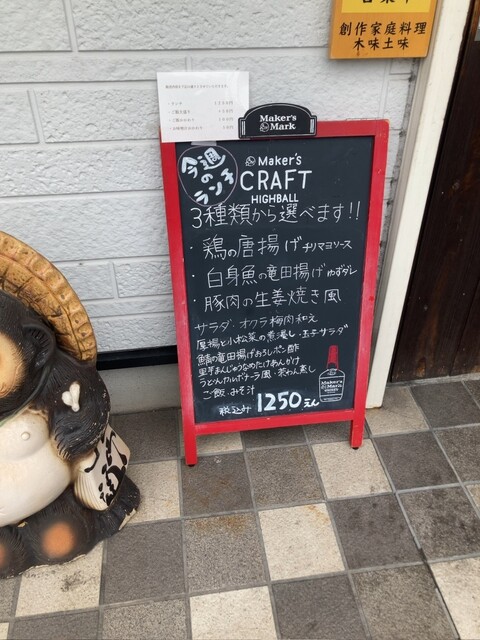 創作家庭料理
木味土味
Maker's
Mark
今週
の
ランチ
Maker's
CRAFT
HIGHBALL
3種類から選べます!!
・鶏の唐揚げチリマヨソース
・白身魚の竜田揚げゆずダレ
・豚肉の生姜焼き風
サラダ・オクラ梅肉和え
厚揚と小松菜の煮浸し・玉子サラダ
鯖の竜田揚げおろしポン酢
里芋まんじゅうなめたけあんかけ
うどんカルボナーラ風・茶わん蒸し
ご飯・みそ汁
税込み 1250えん
Maker's
Mark